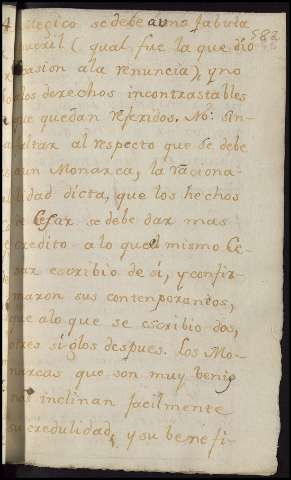 Megico se debe a una fabula
pueril (qual fue la que dio
ocasion a la renuncia), y no
los derechos incontrastables
que quedan referidos. No: sin
faltar al respecto que se debe
a un Monarca, la raciona-
lidad dicta, que los hechos
de Cesar se debe dar mas
credito a lo que el mismo Ce-
sar escribio de si, y confir-
maron sus contemporaneos,
que alo que se escribio dos,
o tres siglos despues. Los Mo-
narcas que son muy benig
nos inclinan facilmente
su credulidad, y su benefi-